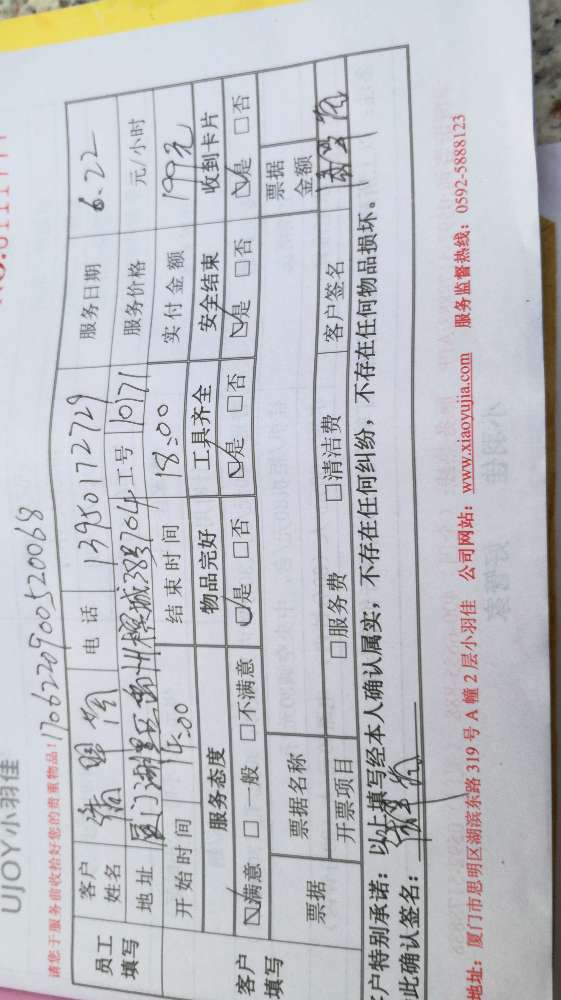 UJOY小羽佳
请您于服务前收拾好您的贵重物品！170622090052006​8
员工填写 客户姓名 电话 13950172729 服务日期 6.22
地址 工号 10171 服务价格 元/小时
开始时间 14:00 结束时间 18:00 实付金额 199元
客户填写 服务态度 物品完好 工具齐全 安全结束 收到卡片
☑满意 □一般 □不满意 ☑是 □否 ☑是 □否 ☑是 □否 ☑是 □否
票据 票据名称 票据金额
开票项目 □服务费 □清洁费 客户签名
户特别承诺：以上填写经本人确认属实，不存在任何纠纷，不存在任何物品损坏。
此确认签名：
地址：厦门市思明区湖滨东路319号A幢2层小羽佳 公司网站：www.xiaoyujia.com 服务监督热线：0592-5888123